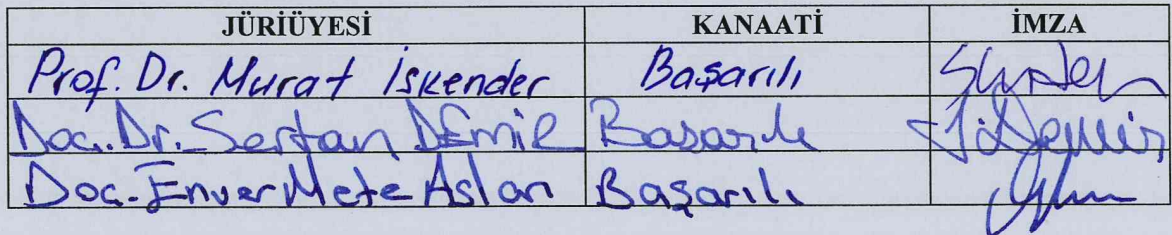 JÜRİÜYESİ KANAATİ İMZA
Prof. Dr. Murat İskender Başarılı
Doç. Dr. Sertan DEMİR Başarılı
Doç. Enver Mete Aslan Başarılı